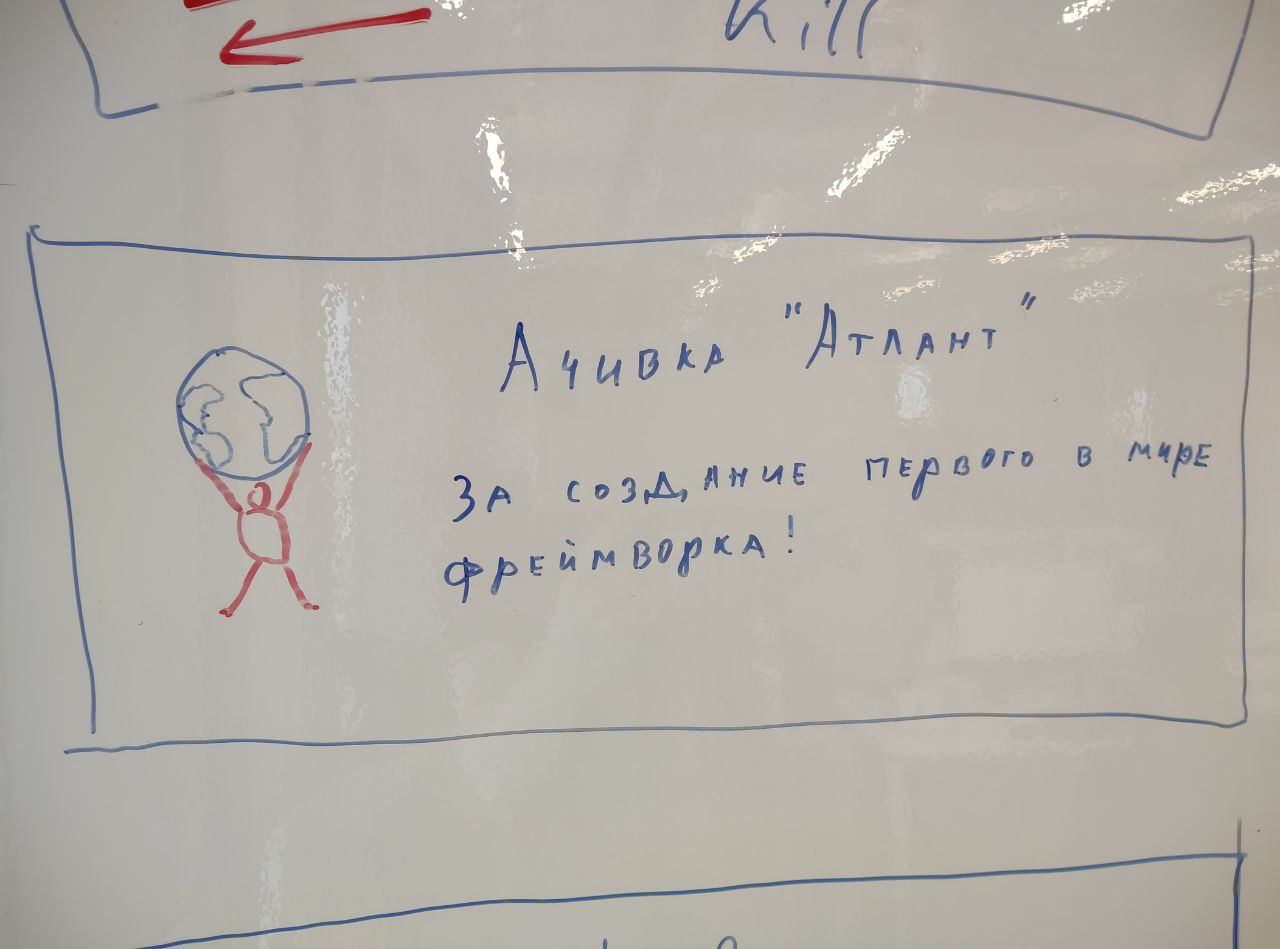 Kill
Ачивка "Атлант"
За создание первого в мире
фреймворка!